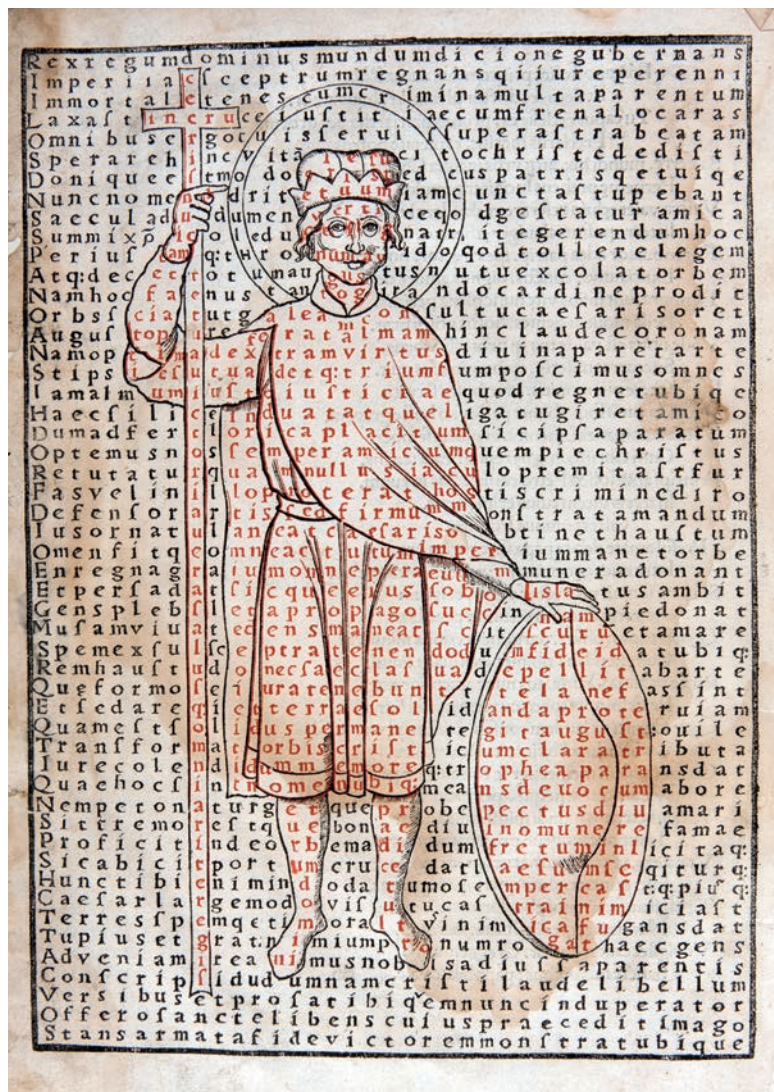 Rexregumdominusmundumdicionegubernans
Imperiiacſceptrumregnansqiiureperenni
Immortaletenescumcriminamultaparentum
Laxaſtincruceiuſtitiaecumfrenalocaras
Omnibuscrgotuisſeruiſſuperaſtrabeatam
Sperarehincvitāieſucitochriſtedediſti
Doniqueetmodoeripſedcuspatrisqetuiqe
Nuncnomentdritetuumiamcunctaſtupebant
Saeculadudumenverticeqodgeſtaturamica
Summixp̄icoeducealiqnatritegerendumhoc
Periuſdamq:tHronumauidoqodtollerelegem
Atq:decettotumauguſtusnutuexcolatorbem
Namhocfaenustantogirandocardineprodit
Orbsſciaturutgaleaconſultucaeſarisoret
Auguſtoptureferatalmamhinclaudecoronam
Namoptimadextramvirtusdiuinaparetarte
Stipsieſutuadetq:triumfumpoſcimusomnes
Iamalmumiuſtiiuſticiaequodregnetubiqe
Haecſiliceinduatatqueligatugiretamico
Dumadferloricaplacitumſicipſaparatum
Optemusnosſemperamicumquempiechriſtus
Returaturquamnullusiaculopremitaſtfur
Faſvelinilloproterathoſtiscriminediro
Defenſorartiſſedfirmummonſtratamandum
Iusornatuancatcaeſarisobtinethauſtum
Omenfitqeomneactutumimperiiummanetorbe
Enregnagraiumomneperaeuummuneradonant
Etperſadatſicqueeiusſobolislatusambit
Gensplebſletapropagoſuceinnampiedonat
Muſamviuatecensmaneatſitſcutuetamare
Spemexſulſceptratenendodumfideidatubiq:
Remhauſtudonecſaeclaſuadepellitabarte
Queformoſeiuratenebunttelanefaſſint
Etſedareqietterraeſolidandaproteruiam
Quameſtſolliduspermanetegitauguſt:ouile
Tranſformatorbiscriſticumclaratributa
Iurecolendidummemoreq:tropheaparansdat
Quaehocſinomenubiqmeansdeuotumabore
Nempetonaturgetqueprobepectusdiuamari
Sittremoreſtquebonaediuinomunerefamae
Proficitindeorbemadidumfretuminlicitaq:
Sicabicitportumcrucedatlaeſumſeqiturq:
Hunctibieniminodatumoſempercaſt:q:piuſq:
Caeſarlargemodoviſutucaſtrainimiciaſt
Terresſpemqetimoraltvinimicafugansdat
Tupiusetgratnimiumpronumrogathaecgens
Adveniamreaunimusnobisadiuſſaparentis
Conſcripſididudumnamcriſtilaudelibellum
Verſibusetproſatibiqēmnuncinduperator
Offeroſanctelibenscuiuspraeceditimago
Stansarmatafidevictoremmonſtratubique